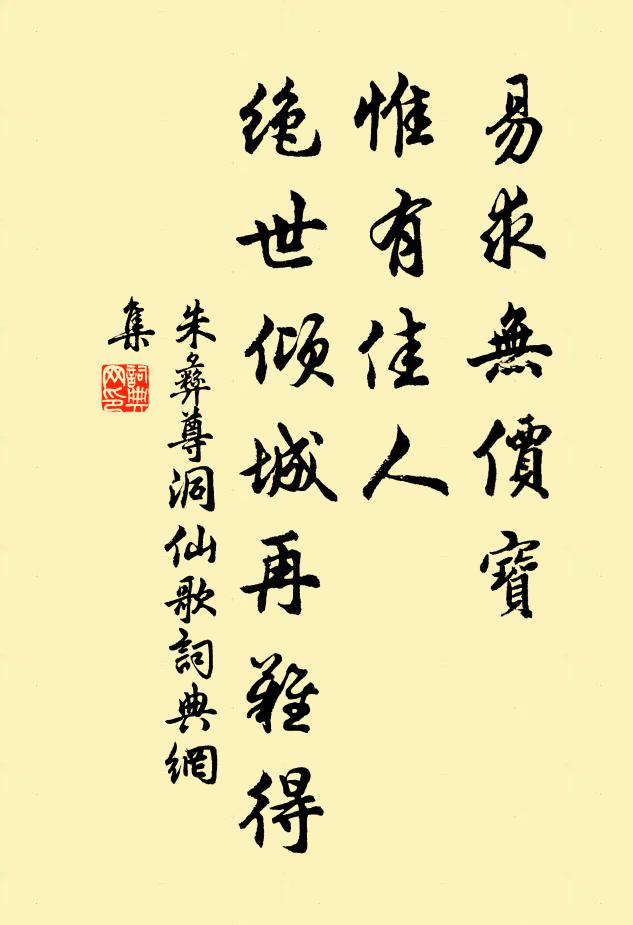 易求無價寶
惟有佳人
絶世傾城再難得
朱彝尊洞仙歌詞典網
集
詞典
网印